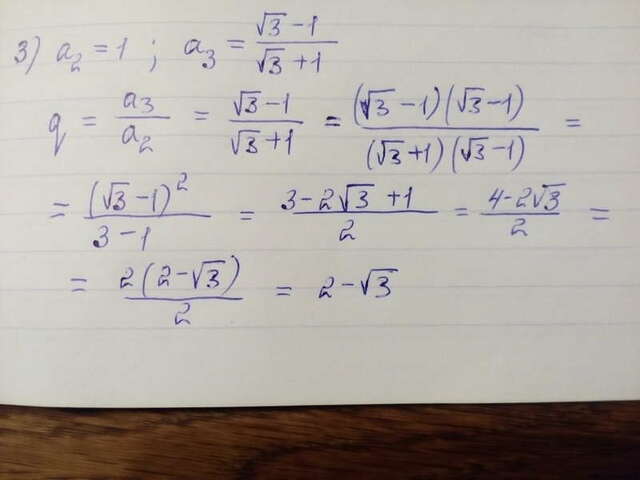 3) a₂ = 1 ; a₃ = (√3 − 1)/(√3 + 1)
q = a₃/a₂ = (√3 − 1)/(√3 + 1) = ((√3 − 1)(√3 − 1))/((√3 + 1)(√3 − 1)) =
= (√3 − 1)²/(3 − 1) = (3 − 2√3 + 1)/2 = (4 − 2√3)/2 =
= 2(2 − √3)/2 = 2 − √3